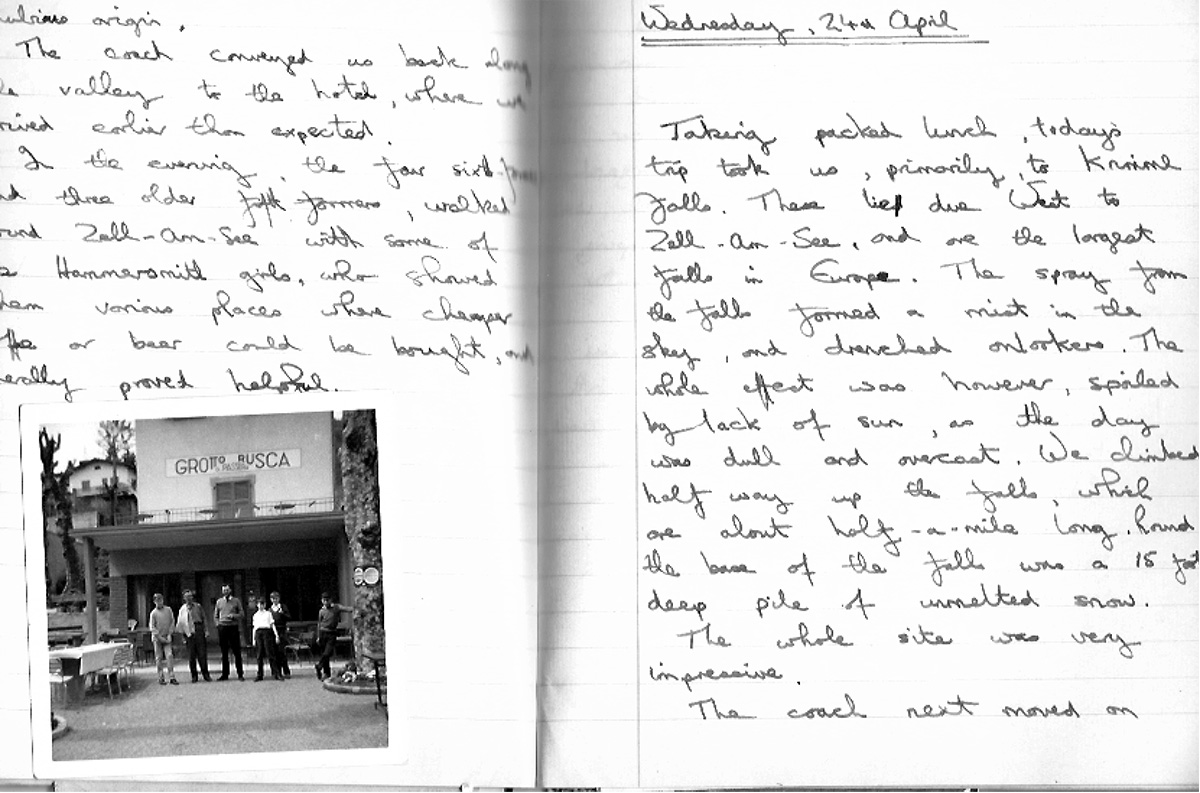 origin.
The coach conveyed us back along
valley to the hotel, where we
rived earlier than expected.
In the evening, the four sixth-formers
three older fifth formers, walked
ound Zell-Am-See with some of
Hammersmith girls, who showed
hem various places where cheaper
or beer could be bought, and
erally proved helpful.
GROTTO RUSCA
Wednesday, 24th April
Taking packed lunch, today's
trip took us, primarily, to Krimml
Falls. These lie due West to
Zell-Am-See, and are the largest
falls in Europe. The spray from
the falls formed a mist in the
sky, and drenched onlookers. The
whole effect was however, spoiled
by lack of sun, as the day
was dull and overcast. We climbed
half way up the falls, which
are about half-a-mile long. Round
the base of the falls was a 15 foot
deep pile of unmelted snow.
The whole site was very
impressive.
The coach next moved on